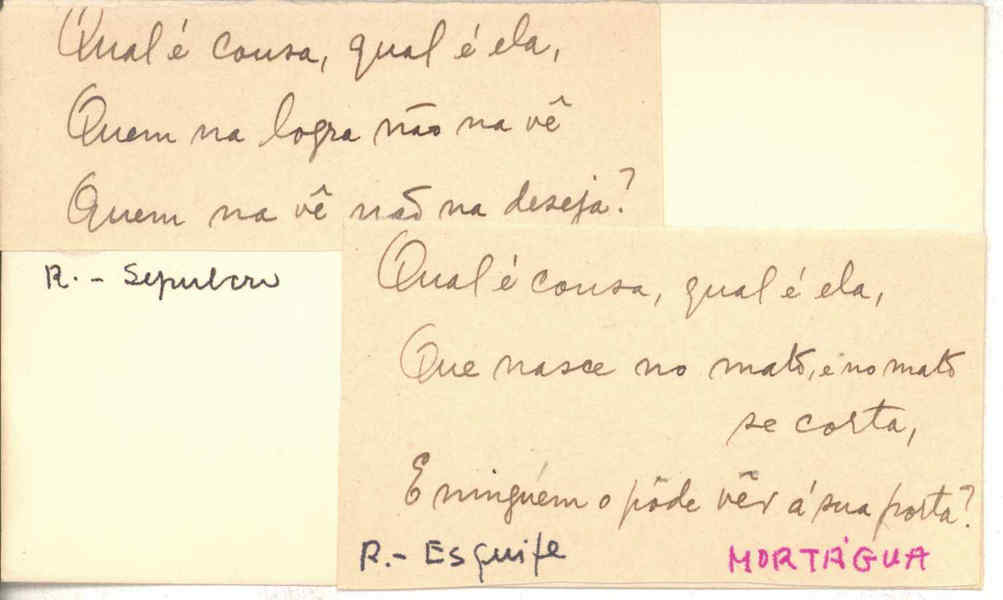 Qual é cousa, qual é ela,
Quem na logra não na vê
Quem na vê não na deseja?
R. - Sepulcro
Qual é cousa, qual é ela,
Que nasce no mato, e no mato
se corta,
E ninguém o pôde vêr á sua porta?
R. - Esquife
MORTÁGUA